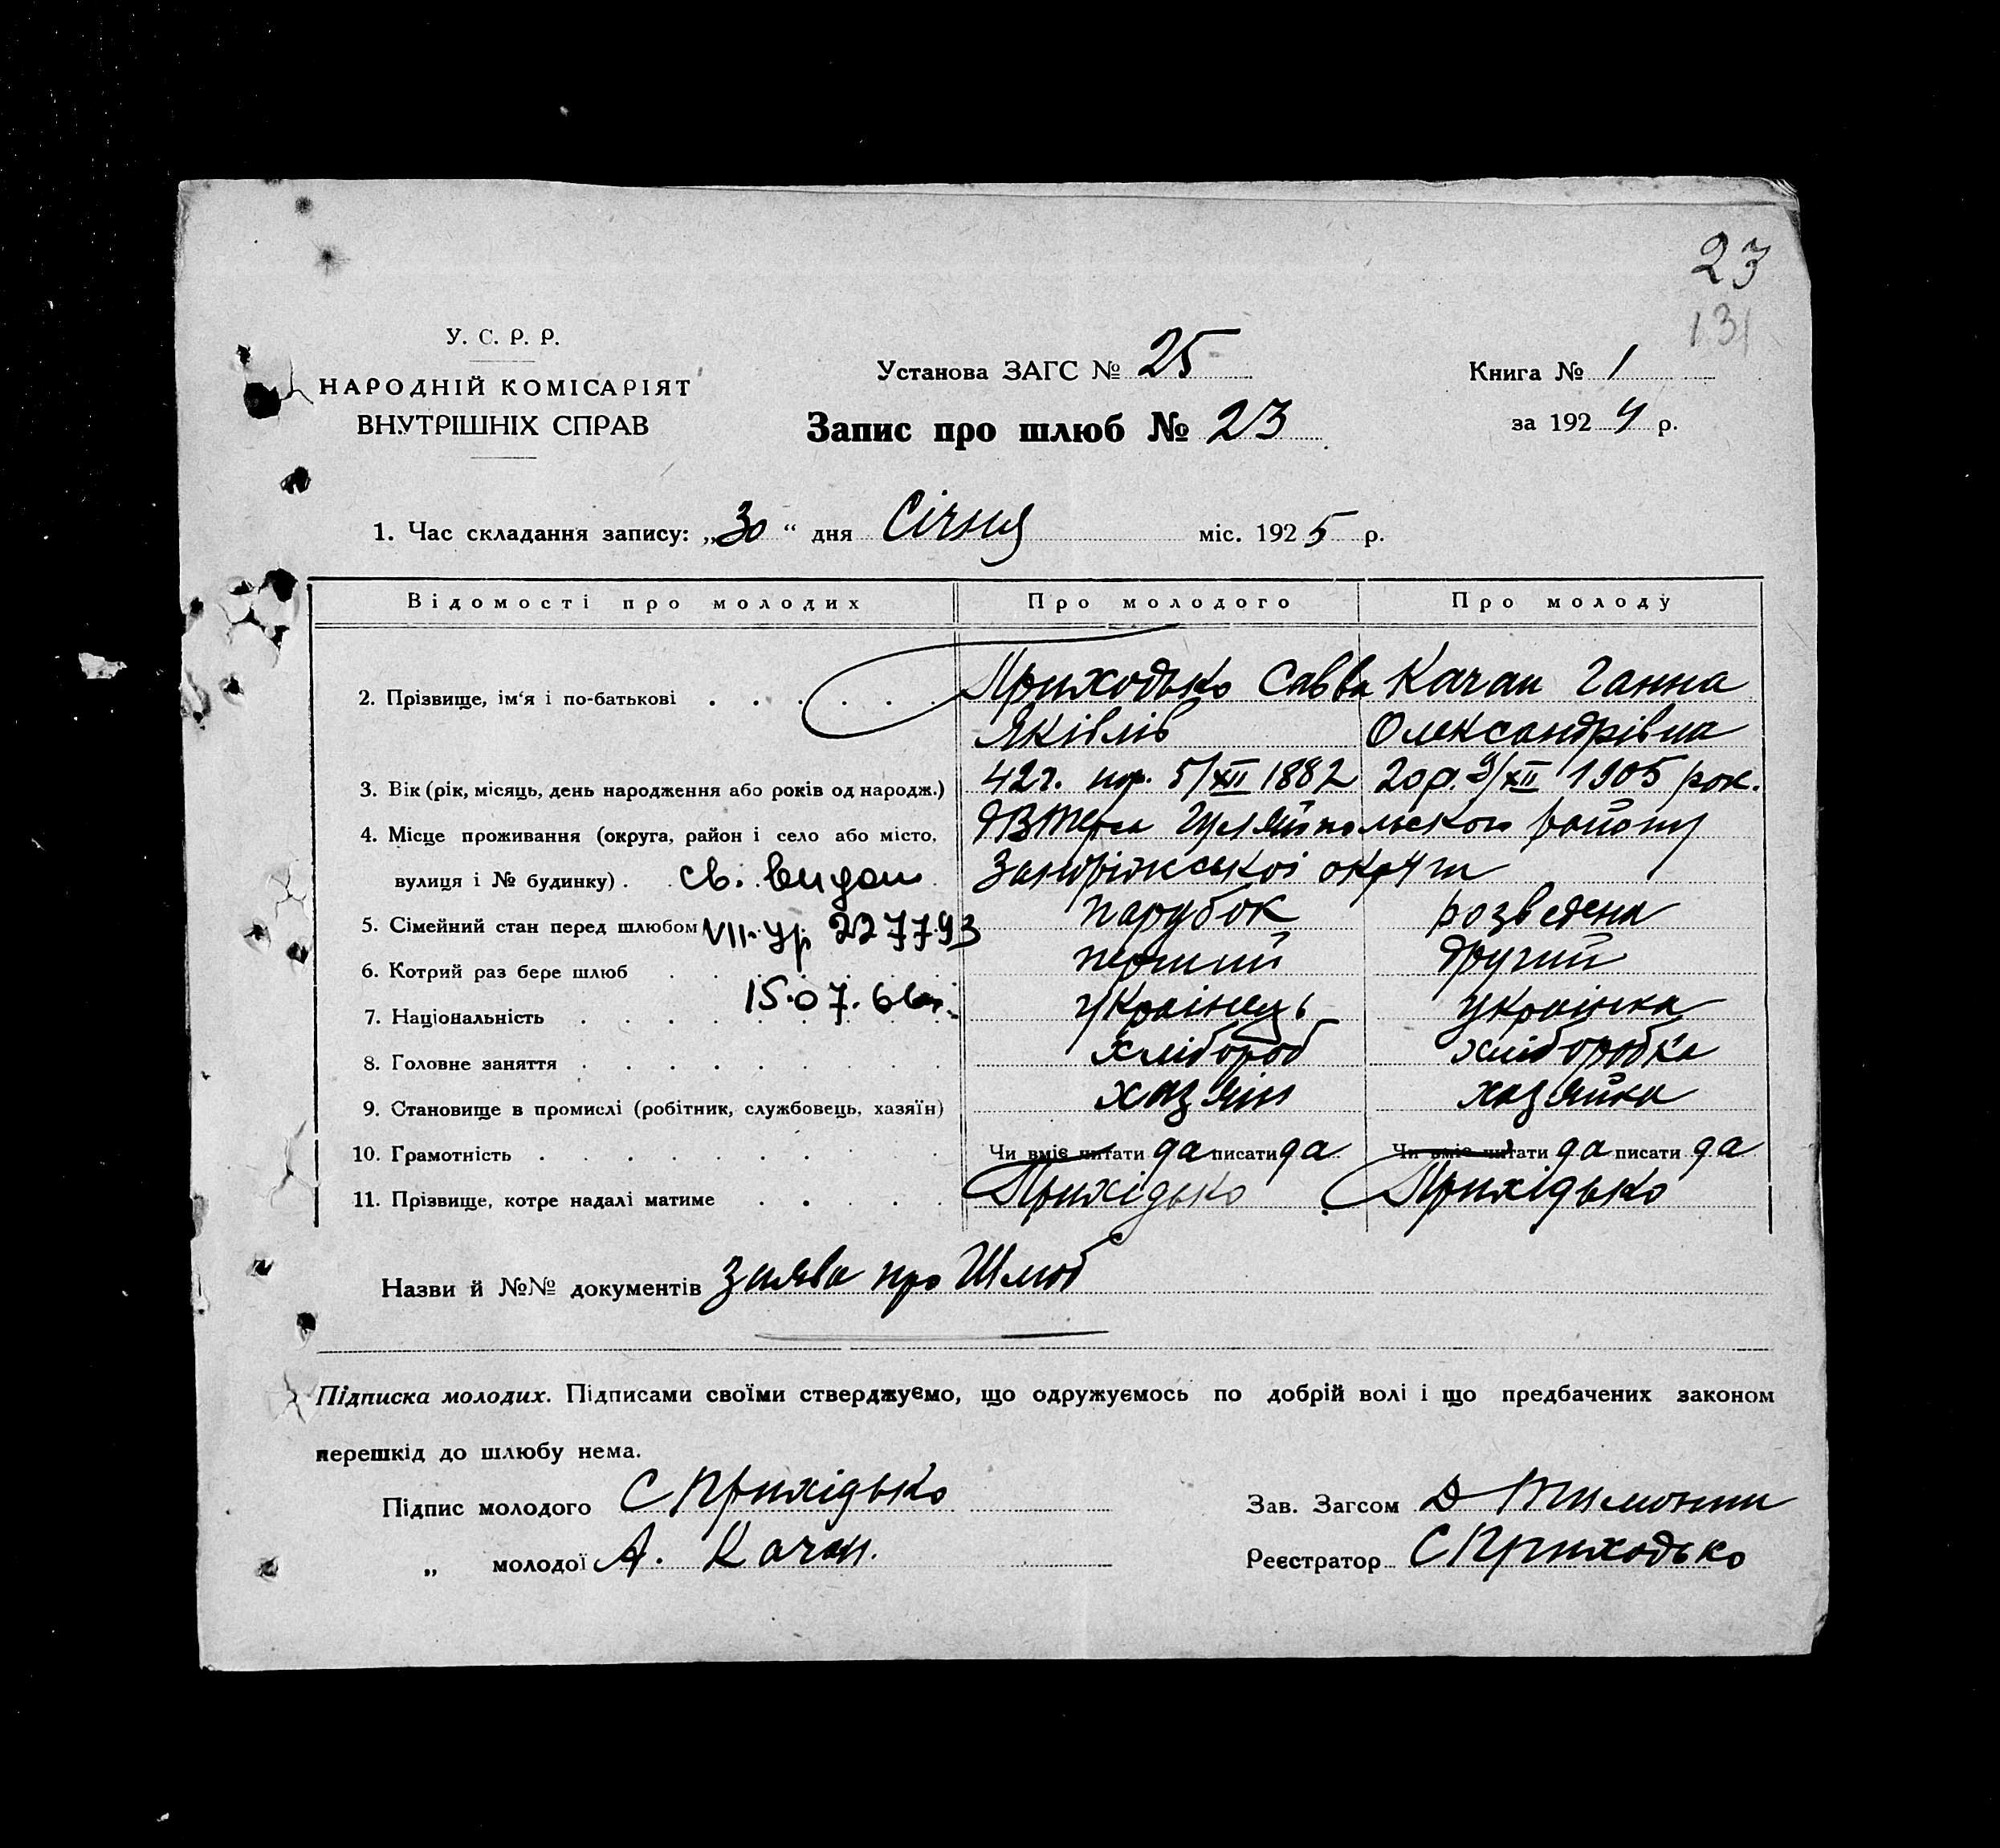 23
131
У. С. Р. Р.
НАРОДНІЙ КОМІСАРІЯТ
ВНУТРІШНІХ СПРАВ
Установа ЗАГС № 25
Запис про шлюб № 23
Книга № 1
за 1924 р.
1. Час складання запису: „30“ дня Січня міс. 1925 р.
Відомості про молодих Про молодого Про молоду
2. Прізвище, ім'я і по-батькові Приходько Савва Качан Ганна
Яківлів Олександрівна
3. Вік (рік, місяць, день народження або років од народж.) 42 г. 5/XII 1882 20 р. 9/XII 1905 рок.
4. Місце проживання (округа, район і село або місто, Гуляйпольского району
вулиця і № будинку). св. видан Запоріжської округи
5. Сімейний стан перед шлюбом VII-ур 227793 парубок розведена
6. Котрий раз бере шлюб перший другий
15.07.66г.
7. Національність українець українка
8. Головне заняття хлібороб хліборобка
9. Становище в промислі (робітник, службовець, хазяїн) хазяін хазяйка
10. Грамотність Чи вміє читати да писати да Чи вміє читати да писати да
11. Прізвище, котре надалі матиме Прихідько Прихідько
Назви й №№ документів Заява про Шлюб
Підписка молодих. Підписами своїми стверджуємо, що одружуємось по добрій волі і що предбачених законом
перешкід до шлюбу нема.
Підпис молодого С Прихідько
„ молодої А. Качан.
Зав. Загсом Д
Реєстратор С Приходько